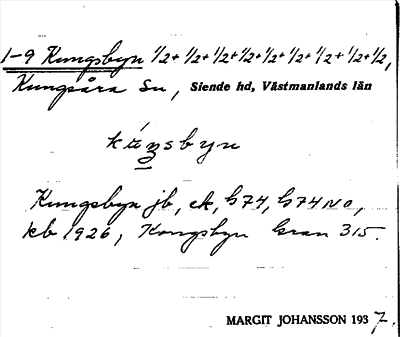 1-9 Kungsbyn 1/2+ 1/2+ 1/2+ 1/2+ 1/2+ 1/2+ 1/2+ 1/2+ 1/2,
Kungsåra Sn, Siende hd, Västmanlands län
kúŋsbyn
Kungsbyn jb, ek, G74, G74NO,
kb 1926, Kongsbyn Gran 315.
MARGIT JOHANSSON 1937.